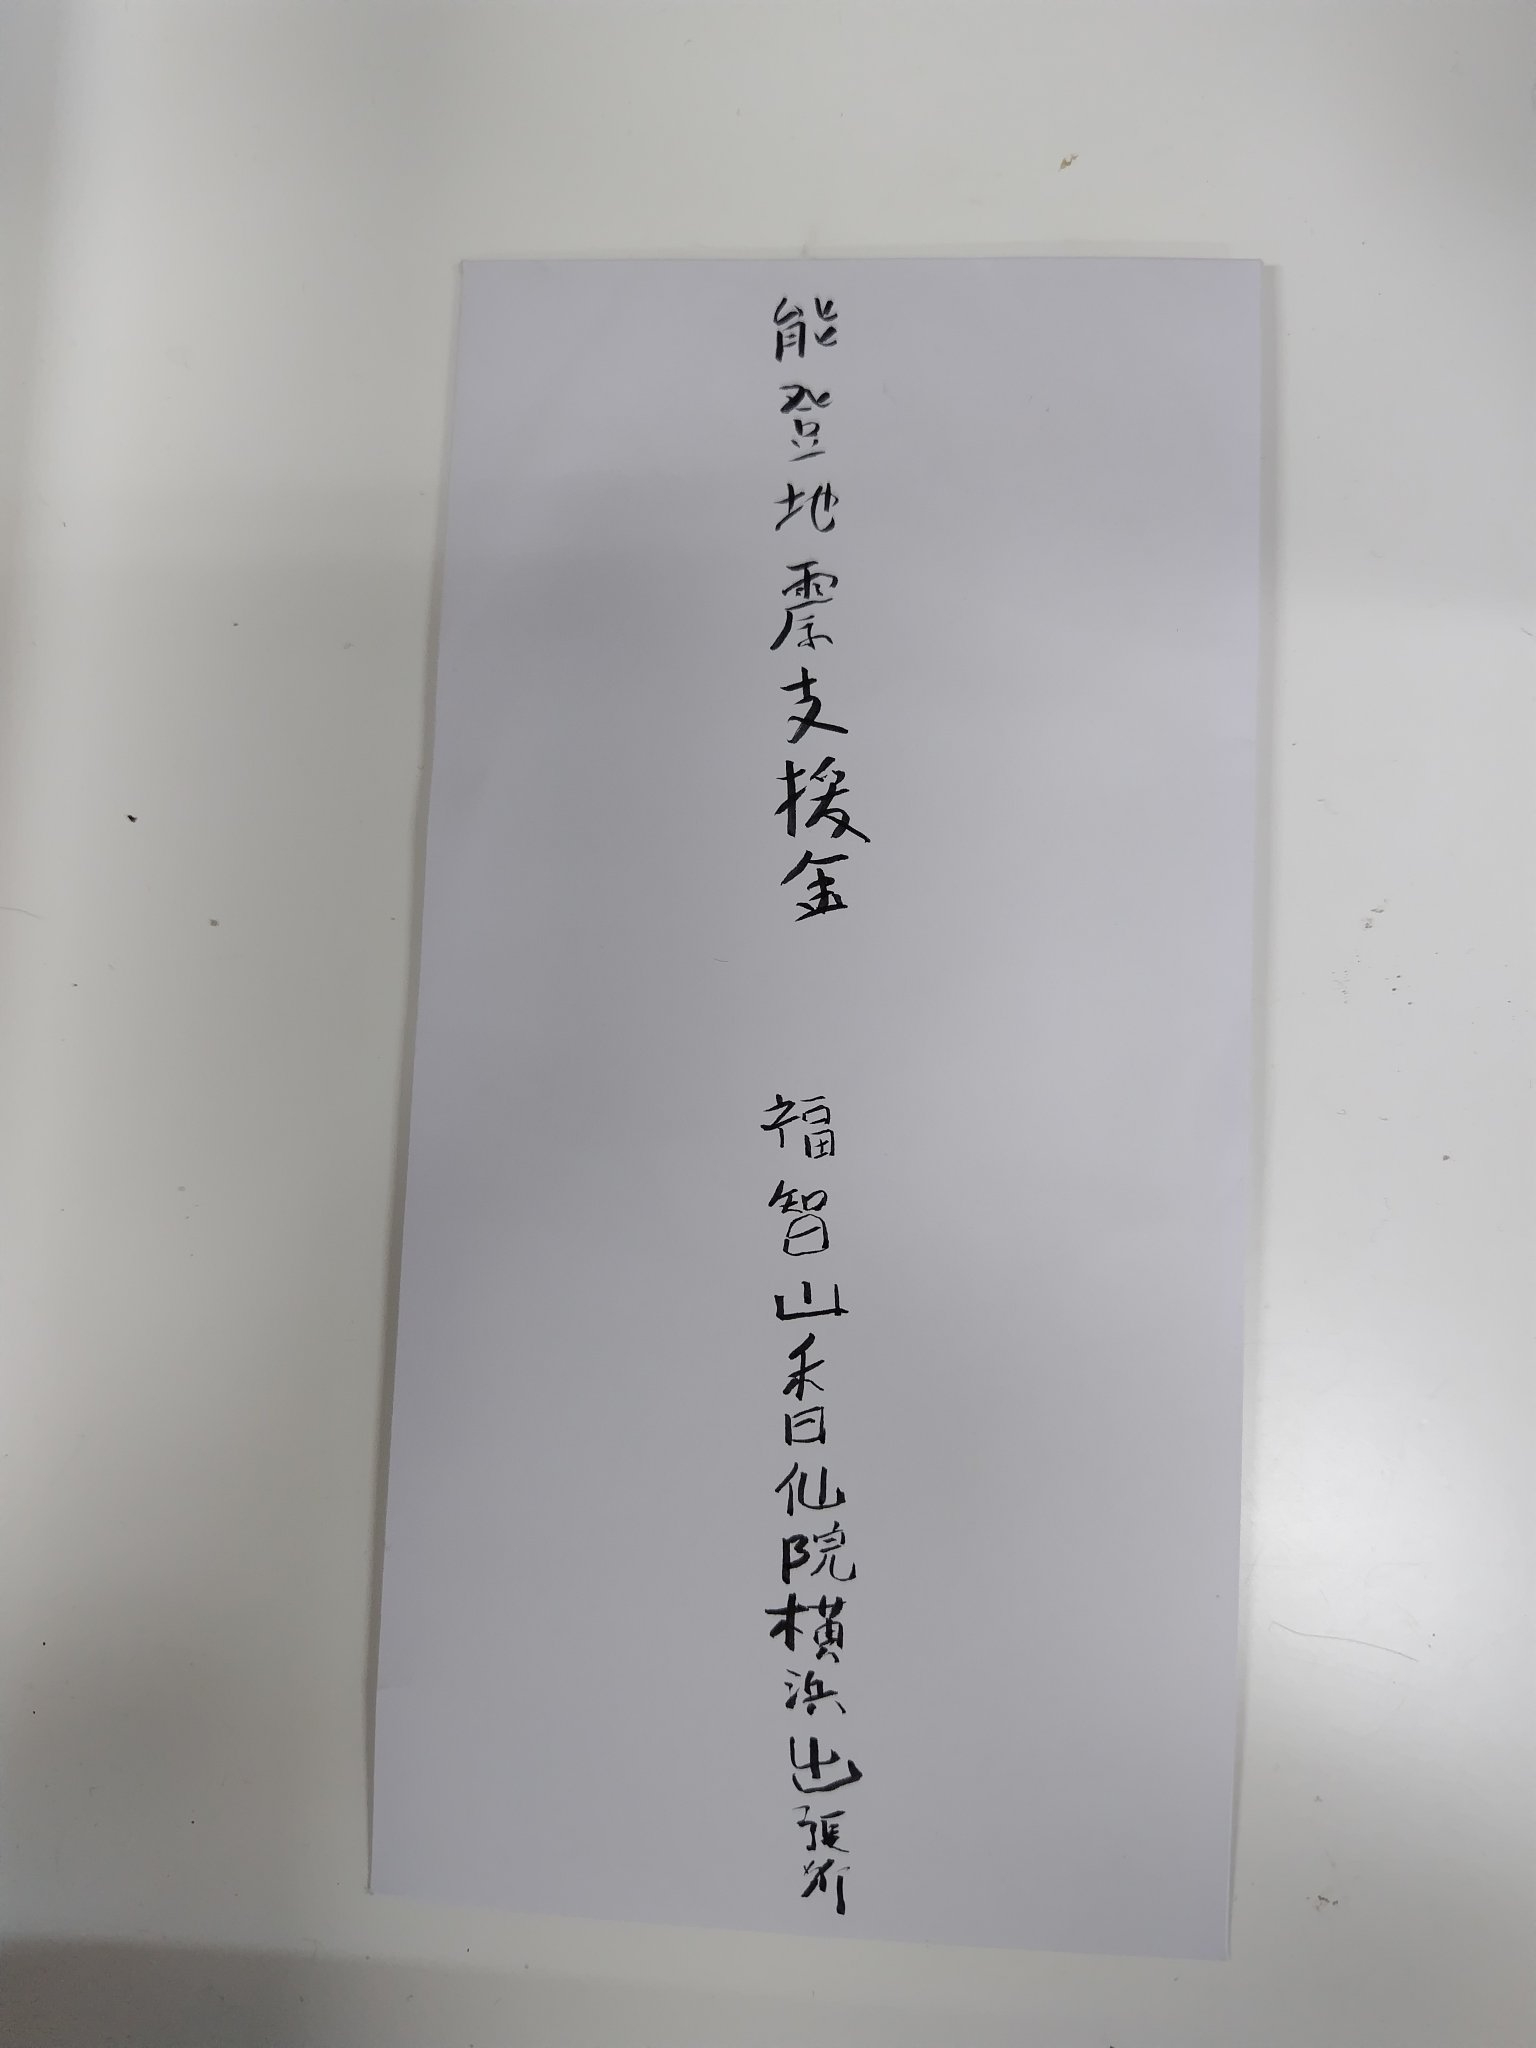 能登地震支援金　福智山香仙院横浜出張所